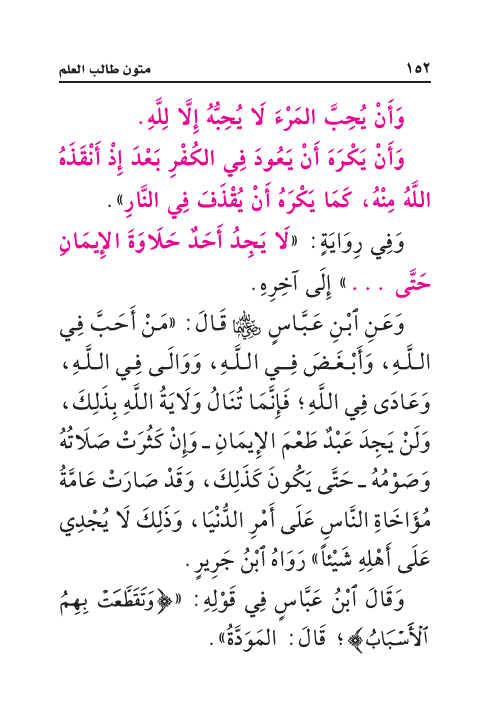 ١٥٢ متون طالب العلم
وَأَنْ يُحِبَّ المَرْءَ لَا يُحِبُّهُ إِلَّا لِلَّهِ.
وَأَنْ يَكْرَهَ أَنْ يَعُودَ فِي الكُفْرِ بَعْدَ إِذْ أَنْقَذَهُ
اللَّهُ مِنْهُ، كَمَا يَكْرَهُ أَنْ يُقْذَفَ فِي النَّارِ».
وَفِي رِوَايَةٍ: «لَا يَجِدُ أَحَدٌ حَلَاوَةَ الإِيمَانِ
حَتَّى ...» إِلَى آخِرِهِ.
وَعَنِ ٱبْنِ عَبَّاسٍ ﵄ قَالَ: «مَنْ أَحَبَّ فِي
اللَّهِ، وَأَبْغَضَ فِي اللَّهِ، وَوَالَى فِي اللَّهِ،
وَعَادَى فِي اللَّهِ؛ فَإِنَّمَا تُنَالُ وَلَايَةُ اللَّهِ بِذَلِكَ،
وَلَنْ يَجِدَ عَبْدٌ طَعْمَ الإِيمَانِ ـ وَإِنْ كَثُرَتْ صَلَاتُهُ
وَصَوْمُهُ ـ حَتَّى يَكُونَ كَذَلِكَ، وَقَدْ صَارَتْ عَامَّةُ
مُؤَاخَاةِ النَّاسِ عَلَى أَمْرِ الدُّنْيَا، وَذَلِكَ لَا يُجْدِي
عَلَى أَهْلِهِ شَيْئاً» رَوَاهُ ٱبْنُ جَرِيرٍ.
وَقَالَ ٱبْنُ عَبَّاسٍ فِي قَوْلِهِ: «﴿وَتَقَطَّعَتْ بِهِمُ
ٱلْأَسْبَابُ﴾؛ قَالَ: المَوَدَّةُ».